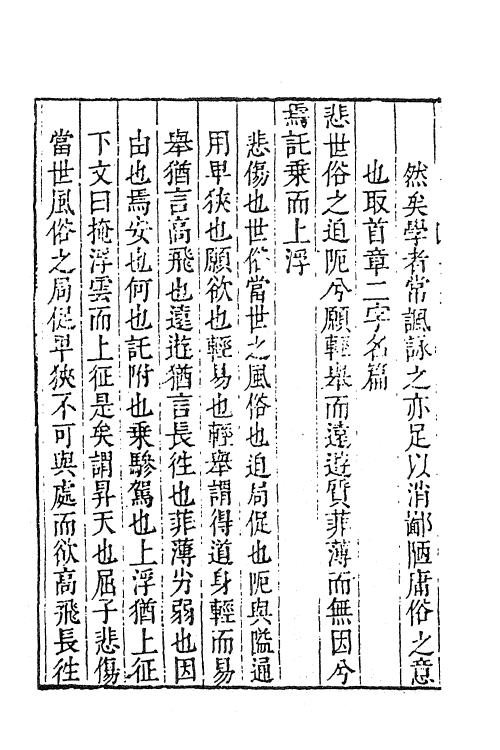 然矣學者常諷詠之亦足以消鄙陋庸俗之意
也取首章二字名篇
悲世俗之迫阨兮願輕舉而遠遊質菲薄而無因兮
焉託乘而上浮
悲傷也世俗當世之風俗也迫局促也阨與隘通
用卑狹也願欲也輕易也輕舉謂得道身輕而易
舉猶言高飛也遠遊猶言長徃也菲薄劣弱也因
由也焉安也何也託附也乘驂駕也上浮猶上征
下文曰掩浮雲而上征是矣謂昇天也屈子悲傷
當世風俗之局促卑狹不可與處而欲高飛長徃